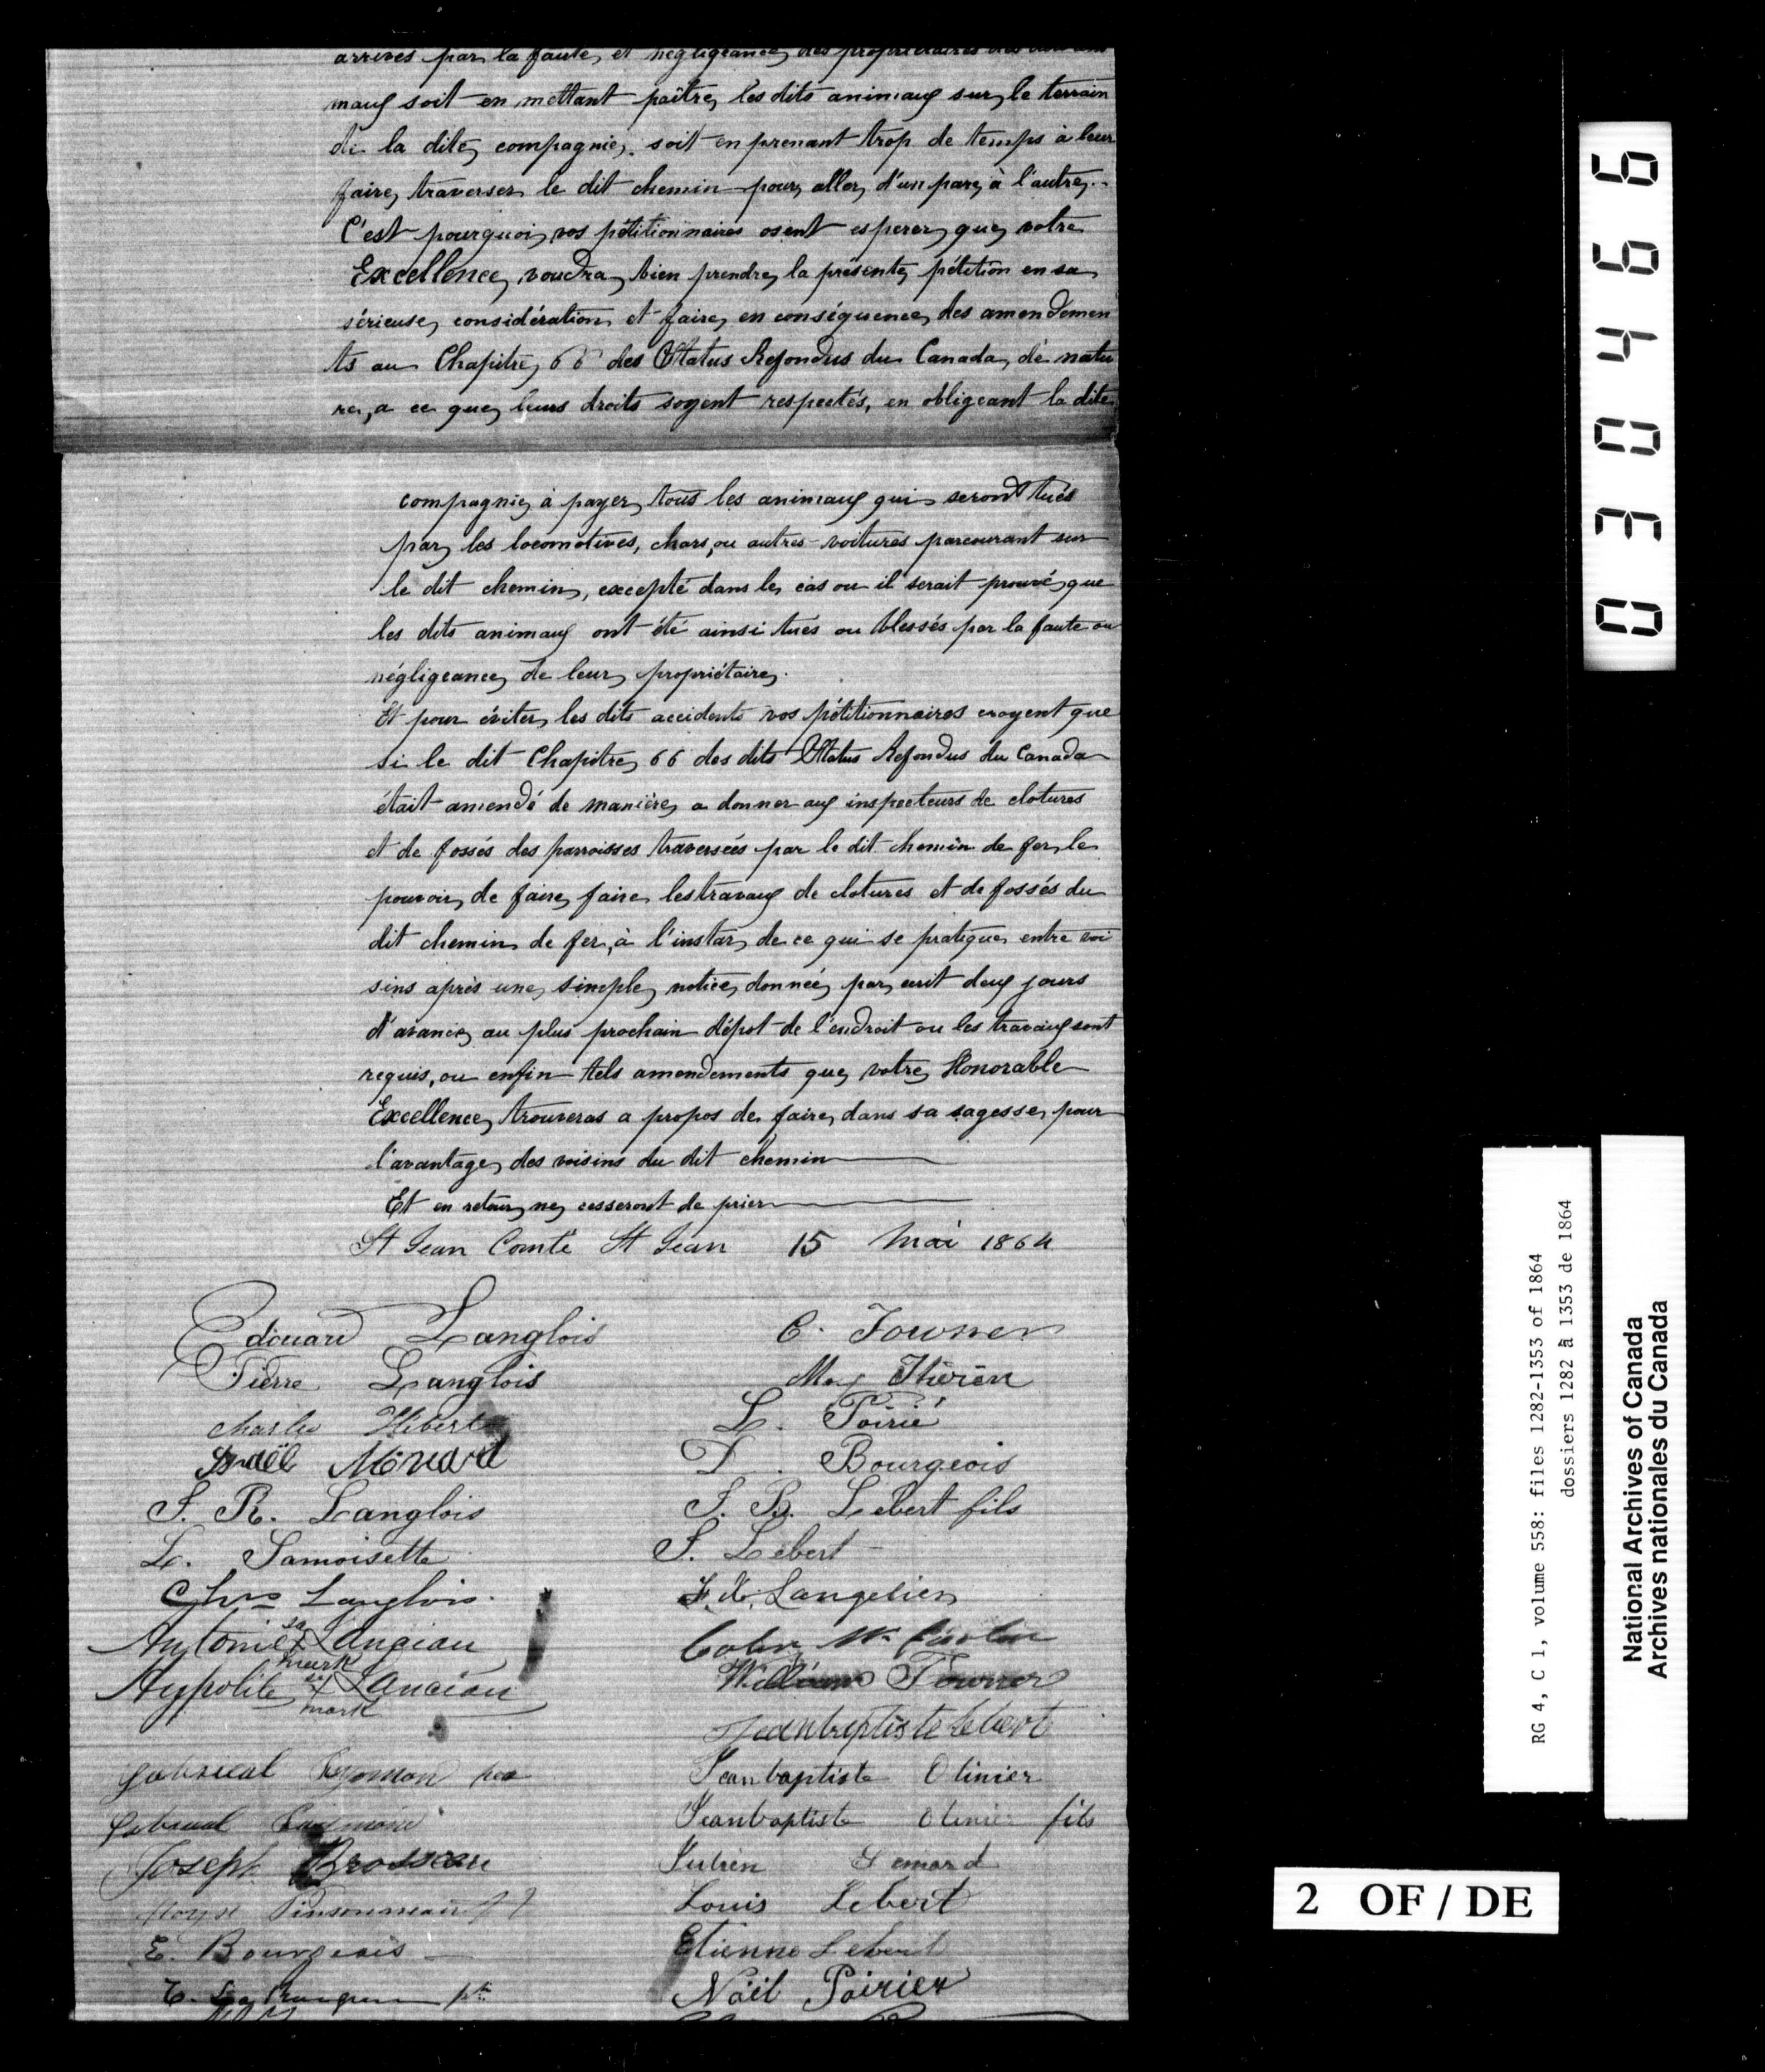 arrives par la faute, et négligeance, des propriétaires des
maux soit en mettant paître, les dits animaux sur le terrain
de la dite compagnie, soit en prenant trop de temps à leur
faire traverser le dit chemin pour aller d'un parc à l'autre.
C'est pourquoi vos pétitionnaires osent esperer que votre
Excellence, voudra bien prendre la présente pétition en sa
sérieuse considération et faire en conséquence des amendemen
ts au Chapitre 66 des Status Refondus du Canada, de natu
re, a ce que leurs droits soyent respectés, en obligeant la dite
compagnie à payer tous les animaux qui seront tués
par les locomotives, chars, ou autres voitures parcourant sur
le dit chemin, excepté dans le cas ou il serait prouvé que
les dits animaux ont été ainsi tués ou blessés par la faute ou
négligeance de leur propriétaire.
Et pour éviter les dits accidents vos pétitionnaires croyent que
si le dit Chapitre 66 des dits Status Refondus du Canada
était amendé de manière a donner aux inspecteurs de clotures
et de fossés des parroisses traversées par le dit chemin de fer, le
pouvoir de faire faire les travaux de clotures et de fossés du
dit chemin de fer, à l'instar de ce qui se pratique entre voi
sins après une simple notice donnée par ecrit deux jours
d'avance au plus prochain dépot de l'endroit ou les travaux sont
requis, ou enfin tels amendements que votre Honorable
Excellence trouveras a propos de faire dans sa sagesse pour
l'avantage des voisins du dit chemin
Et en retour ne cesseront de prier
St Jean Comté St Jean 15 Mai 1864
Edouard Langlois
Pierre Langlois
Charles Hibert
Israël Ménard
J. R. Langlois
L. Samoisette
Chrs Langlois.
Antonie sa x mark Lanciau
Hypolite sa x mark Lanciau
Gabrieal
Gabrieal
Joseph Brosseau
Moyse Pinsonneault
E. Bourgeois
C. Fowner
Thérien
L. Poirié
D. Bourgeois
J. B. Lebert fils
J. Lebert
F. X. Langelier
William Fowner
Jeanbaptiste Lebert
Jeanbaptiste Olinier
Jeanbaptiste Olinier fils
Julien
Louis Lebert
Etienne Lebert
Noël Poirier
030466
RG 4, C 1, volume 558: files 1282-1353 of 1864
dossiers 1282 à 1353 de 1864
National Archives of Canada
Archives nationales du Canada
2 OF / DE